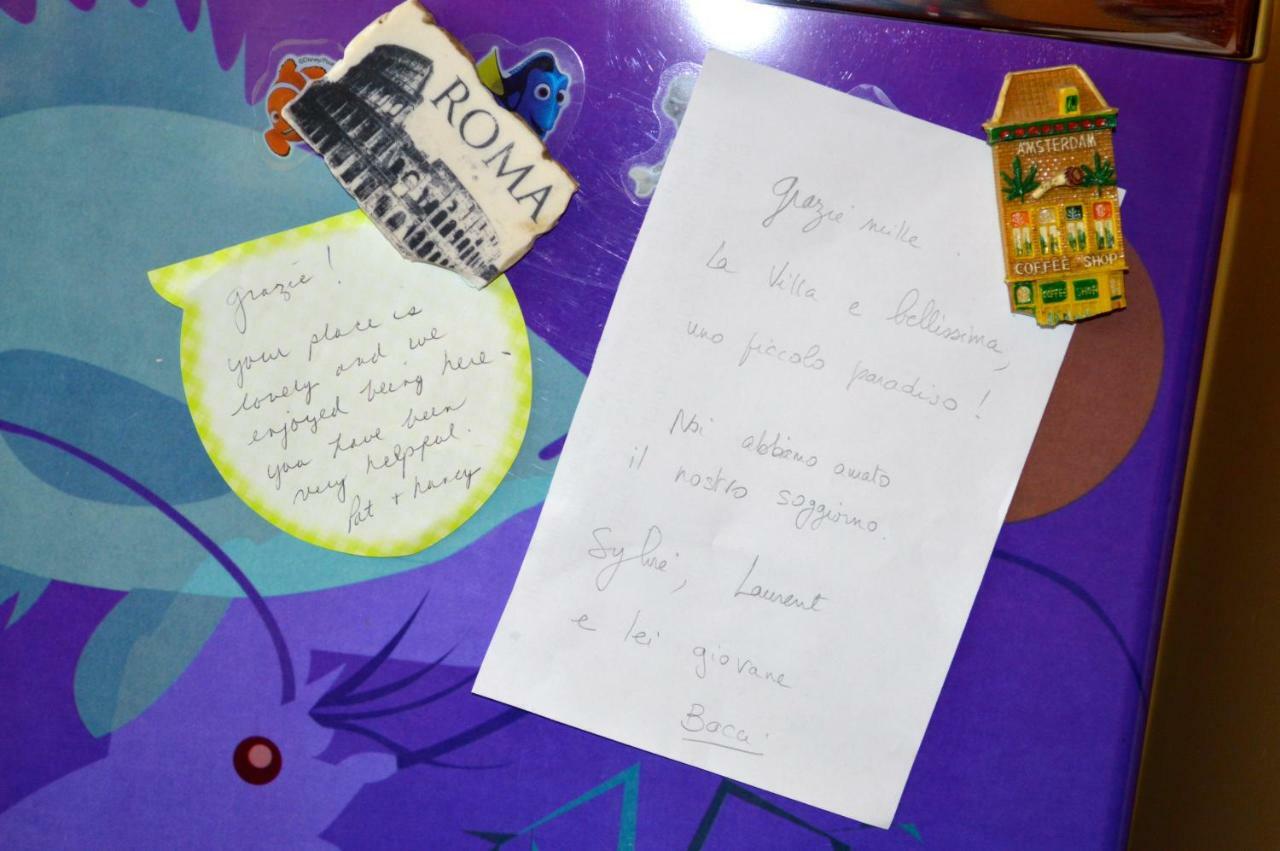 ROMA
grazie!
your place is
lovely and we
enjoyed being here -
you have been
very helpful.
Pat + Nancy
grazie mille.
La Villa e bellissima,
uno piccolo paradiso!
Noi abbiamo amato
il nostro soggiorno.
Sylvie, Laurent
e lei giovane
Baca.
AMSTERDAM
COFFEE SHOP
COFFEE SHOP